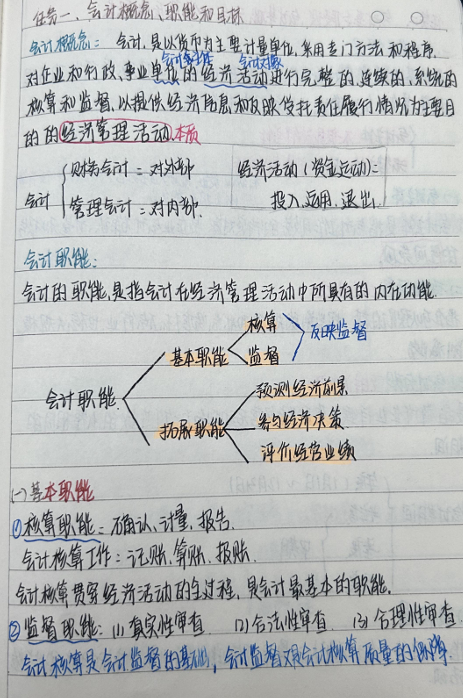 任务一、会计概念、职能和目标
会计概念：会计，是以货币为主要计量单位，采用专门方法和程序，
会计主体 会计对象
对企业和行政、事业单位的经济活动进行完整的、连续的、系统的
核算和监督，以提供经济信息和反映受托责任履行情况为主要目
的的经济管理活动。本质
会计
财务会计：对外部
管理会计：对内部
经济活动（资金运动）：
投入、运用、退出
会计职能：
会计的职能，是指会计在经济管理活动中所具有的内在功能
会计职能
基本职能
核算
监督
反映监督
拓展职能
预测经济前景
参与经济决策
评价经营业绩
(一)基本职能
①核算职能：确认、计量、报告
会计核算工作：记账、算账、报账
会计核算贯穿经济活动的全过程，是会计最基本的职能。
②监督职能：(1)真实性审查 (2)合法性审查 (3)合理性审查
会计核算是会计监督的基础，会计监督又是会计核算质量的保障